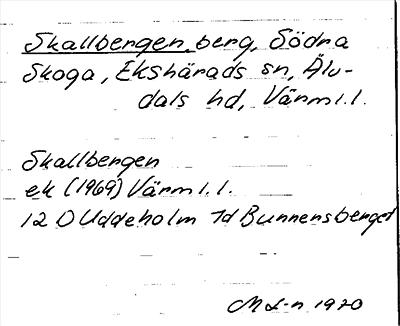 Skallbergen, berg, Södra
Skoga, Ekshärads sn, Älv-
dals hd, Värml.l.
Skallbergen
ek (1969) Värml.l.
12 D Uddeholm 7d Bunnersberget
M L-n 1970